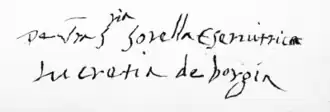 De Vra S.ria Sorella Eseruitrice
Lucretia de borgia